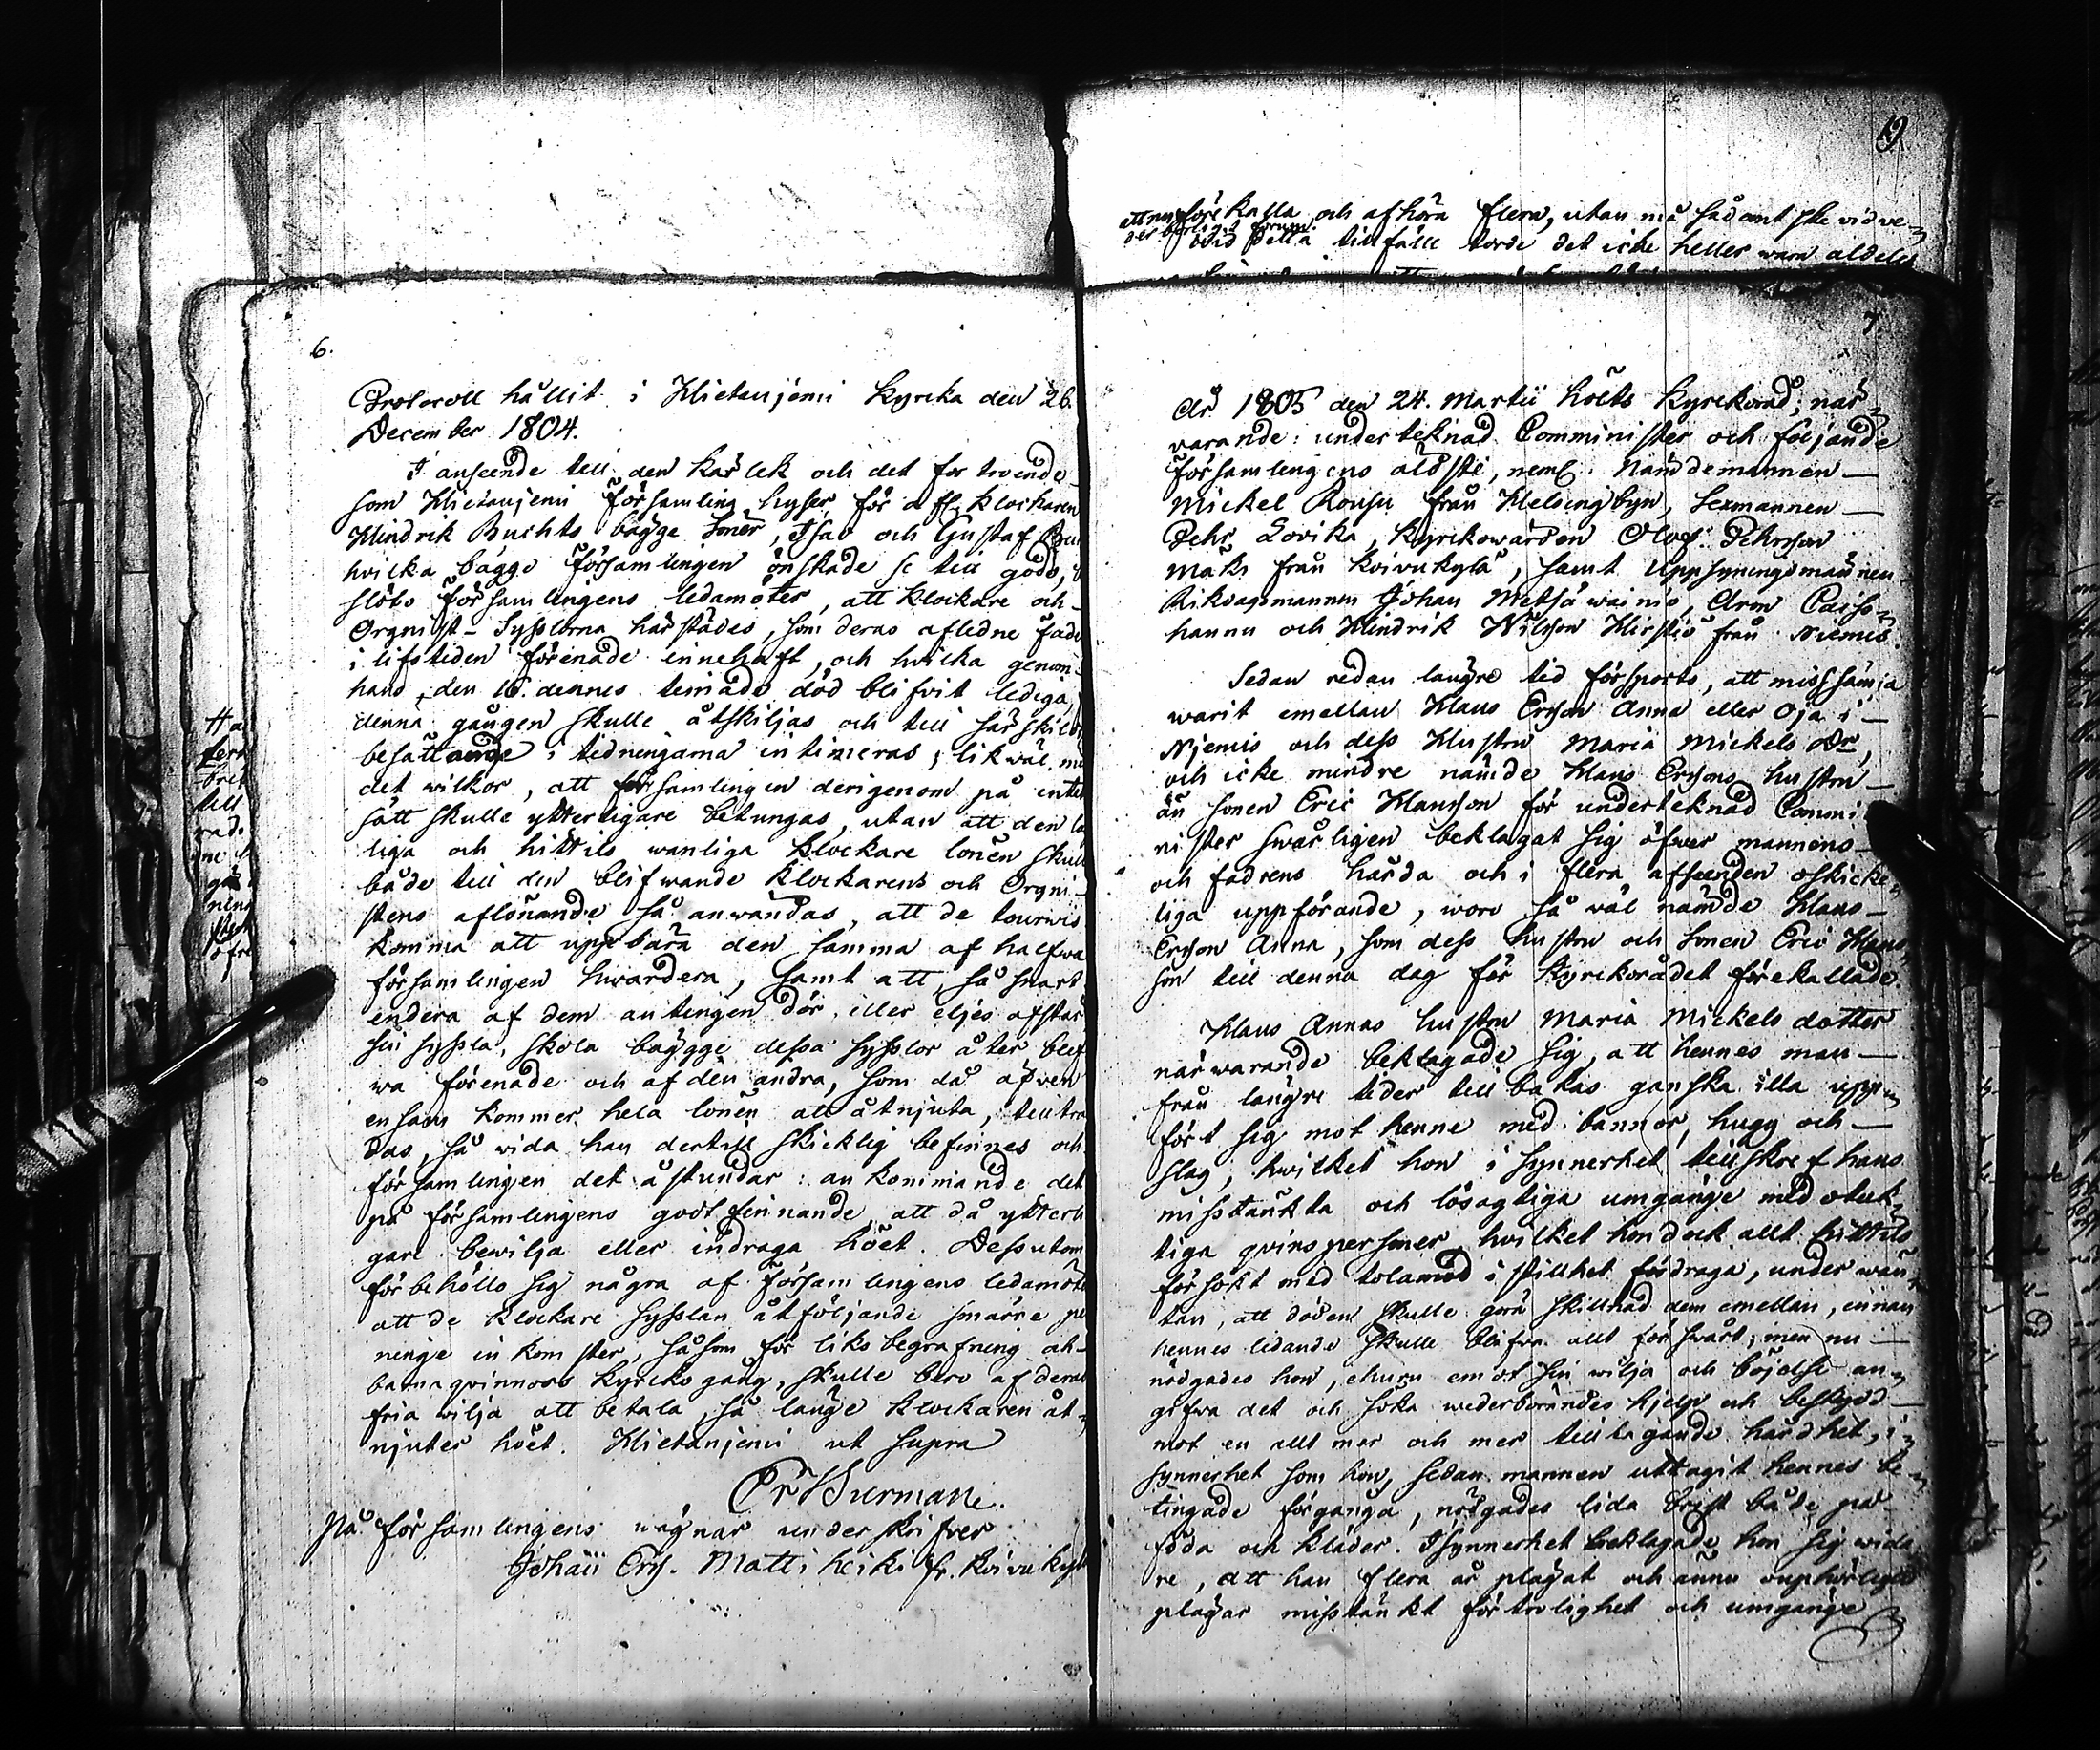 9
att nu förekalla och afhöra flera, utan må sådant ske vid ve-
derbörligt forum.
Vid detta tillfälle torde det icke heller wara aldeles
6.
Protocoll hållit i Hietaniemi Kyrcka den 26.
December 1804.
I anseende till den kärlek och det förtroende
som Hietaniemi Församling hyser för afl. klockaren
Hindrik Buchts bägge söner, Isac och Gustaf Bu
hvilka bägge Församlingen önskade se till godo,
slöto Församlingens ledamöter, att klockare och
Orgnist-Sysslorna härstädes, som deras aflidne fade
i lifstiden förenade innehaft, och hvilka genom
hans, den 16. dennes timade död blifvit lediga,
denna gången skulle åtskiljas och till särskild
besättande i tidningarna intimeras; likväl me
det wilkor, att församlingen derigenom på intet
sätt skulle ytterligare betungas, utan att den la
liga och hittils wanliga klockare lönen skull
både till den blifwande klockarens och Orgni-
stens aflönande så anwändas, att de tourvis
komma att uppbära den samma af halfwa
församlingen hwardera, samt att så snart
endera af dem antingen dör, eller eljes afstår
sin syssla, skola bägge dessa sysslor åter blif
wa förenade och af den andra, som då äfven
ensam kommer hela lönen att åtnjuta, tillträ
das, så wida han dertill skicklig befinnes och
församlingen det åstundar: ankommande det
på församlingens godtfinnande att då ytterli
gare bewilja eller indraga höet. Dessutom
förbehöllo sig några af Församlingens ledamöte
att de klockare sysslan åtföljande smärre pe
ninge inkomster, såsom för liks begrafning och
barnaqvinnors kyrkogång, skulle bero af deras
fria wilja att betala, så länge klockaren åt-
njuter höet. Hietaniemi ut supra
Er. Wurman.
På församlingens wägnar underskrifver
Johan Ers. Matti heiki fr. Koivukyl
7.
År 1805 den 24. Martii hölts Kyrckoråd; när-
varande: undertecknad Comminister och följande
Församlingens äldste, neml. Nämdemannen
Mickel Rousu från Helsingbyn, Sexmannen
Pehr Lovika, Kyrckowärden Olof Pehrsson
Maki från Koivukylä, samt Uppsyningsmännen
Riksdagsmannen Johan Metsäwainio, Aron
hannu och Hindrik Nilsson Kirstiö från Niemis.
Sedan redan längre tid försports, att misssämja
warit emellan Klaus Ersson Anna eller Oja i
Njemis och dess Hustru Maria Mickels Dr,
och icke mindre nämde Klaus Erssons hustru
än sonen Eric Klausson för underteknad Commi
nister swårligen beklagat sig öfwer mannens
och fadrens hårda och i flera afseenden oskicke-
liga uppförande, woro så väl nämde Klaus
Ersson Anna, som dess hustru och sonen Eric Klaus
son till denna dag för Kyrckorådet förekallade.
Klaus Annas hustru Maria Mickels dotter
närwarande beklagade sig, att hennes man
från längre tider tillbakas ganska illa upp-
fört sig mot henne med bannor, hugg och
slag; hwilket hon i synnerhet tillskref hans
misstänkta och lösagtiga umgänge med otuk-
tiga qvinspersoner, hvilket hon dock allt hittils
försökt med tolamod i stillhet fördraga, under wän-
tan, att döden skulle göra skillnad dem emellan, innan
hennes lidande skulle blifva allt för swårt; men nu
nödgades hon, ehuru emot sin wilja och böjelse an-
gifva det och söka wederbörandes hjelp och beskydd
mot en allt mer och mer tilltagande hårdhet, i
synnerhet som hon, sedan mannen uttagit hennes be-
tingade förgånga, nödgades lida brist både på
föda och kläder. I synnerhet beklagade hon sig wida
re, att han flera år plägat och ännu ouphörligen
plägar misstänkt förtrolighet och umgänge